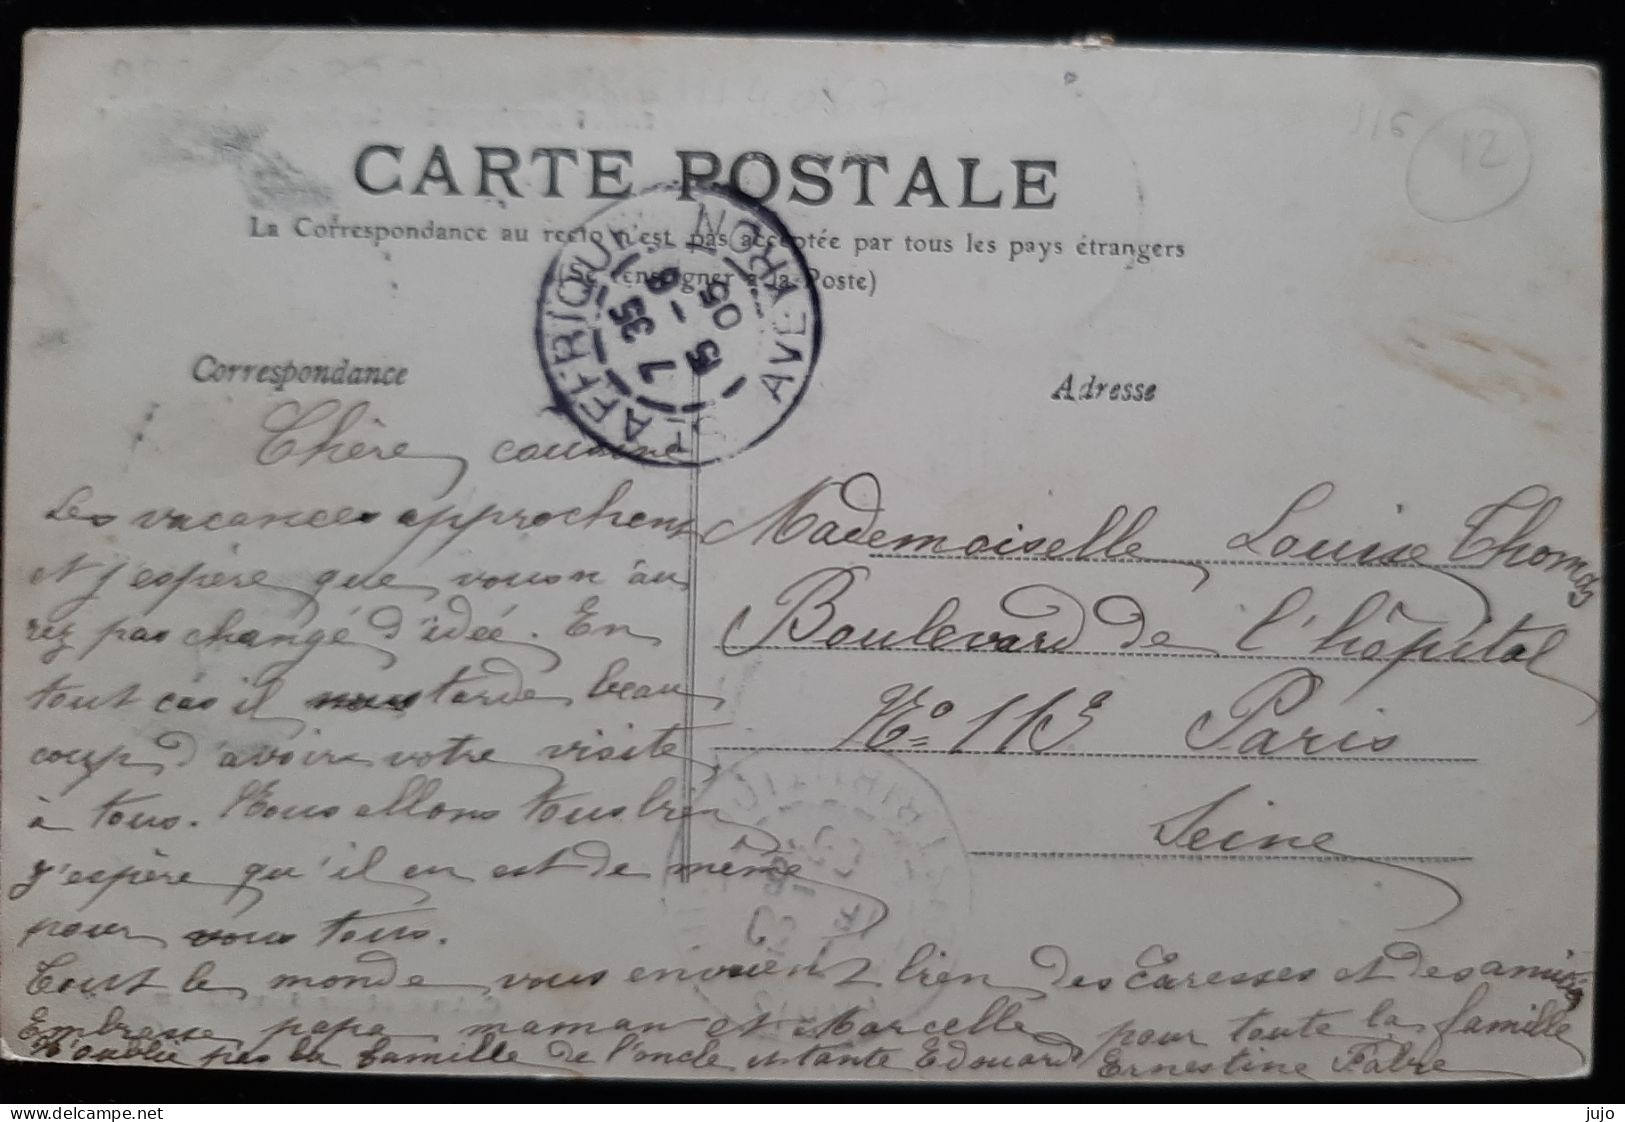 116 12
CARTE POSTALE
La Correspondance au recto n'est pas acceptée par tous les pays étrangers
(Se renseigner à la Poste)
ST AFFRIQUE AVEYRON
7 35
5 - 6
05
Correspondance
Adresse
Chère cousine
Les vacances approchent
et j'espère que vous n'au
rez pas changé d'idée. En
tout cas il nous tarde beau
coup d'avoir votre visite
à tous. Nous allons tous bien
j'espère qu'il en est de même
pour vous tous.
Tout le monde vous envoient bien des caresses et des amitiés
Embrasse papa maman et Marcelle pour toute la famille
N'oublie pas la famille de l'oncle et tante Edouard Ernestine Fabre
Mademoiselle Louise Thomas
Boulevard de l'hôpital
No 113 Paris
Seine
delcampe.net
jujo